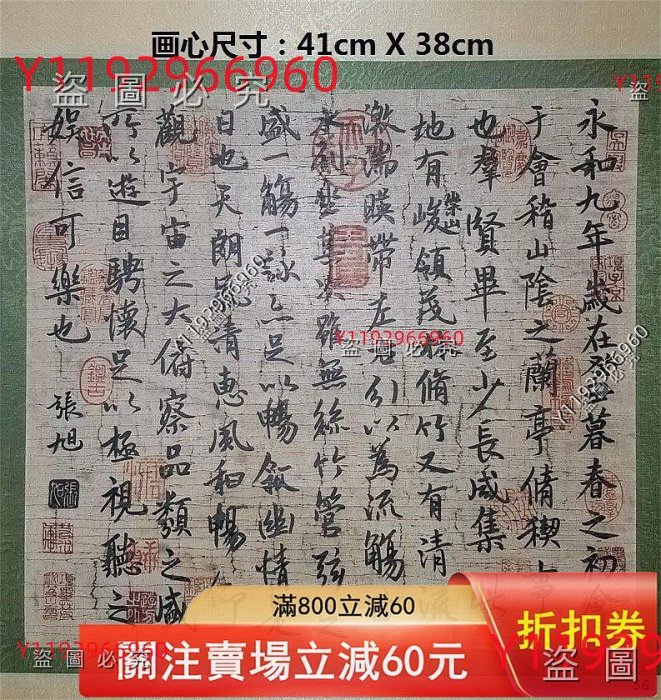 画心尺寸：41cm X 38cm
Y1192966960
盗圖必究
永和九年歲在癸丑暮春之初
于會稽山陰之蘭亭脩稧
也羣賢畢至少長咸集
地有崇山峻領茂林脩竹又有清
激湍暎帶左右引以為流觴
水列坐其次雖無絲竹管弦
盛一觴一詠亦足以暢叙幽情
日也天朗氣清惠風和暢
觀宇宙之大俯察品類之盛
所以遊目騁懷足以極視聽之
娛信可樂也
張旭
Y1192966960
盗圖必究
Y1192966960
盗圖必究
Y1192966960
盗圖必究
滿800立減60
關注賣場立減60元
折扣券
Y1192966960
盗圖必究